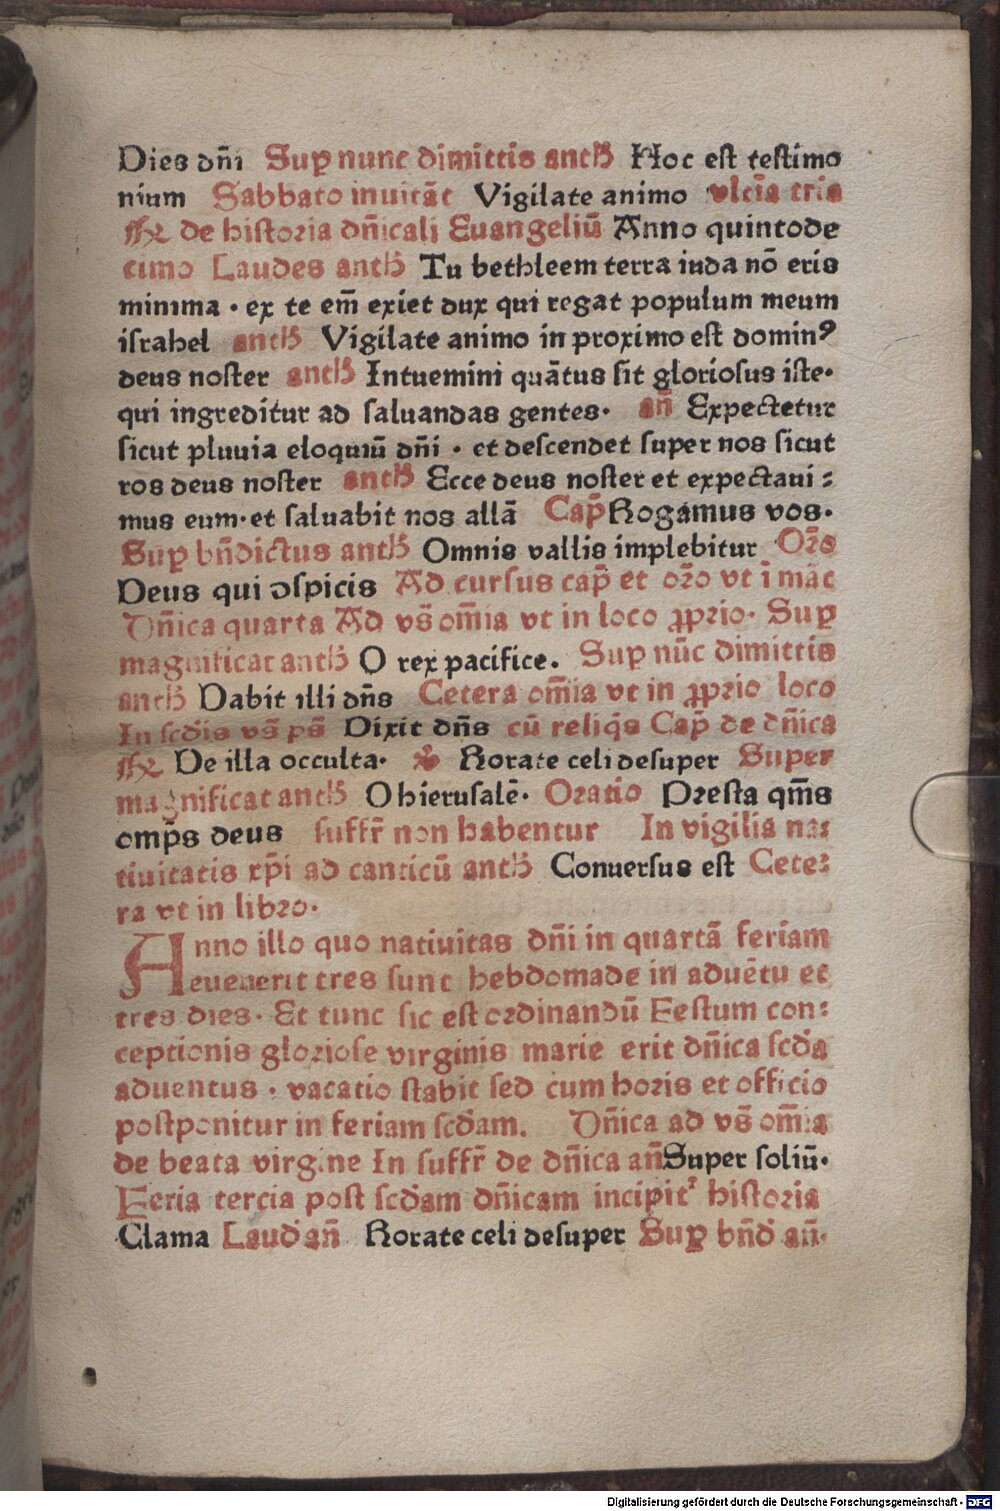 Dies dn̄i Suꝑ nunc dimittis anth̄ Hoc est testimo
nium Sabbato inuitāt Vigilate animo vlcīa tria
de historia dn̄icali Euangeliū Anno quintode
cimo Laudes anth̄ Tu bethleem terra iuda nō eris
minima · ex te em̄ exiet dux qui regat populum meum
israhel anth̄ Vigilate animo in proximo est dominꝰ
deus noster anth̄ Intuemini quātus sit gloriosus iste·
qui ingreditur ad saluandas gentes· an̄ Expectetur
sicut pluuia eloquiū dn̄i · et descendet super nos sicut
ros deus noster anth̄ Ecce deus noster et expectaui⸗
mus eum·et saluabit nos allā Cap̄ Rogamus vos·
Suꝑ bn̄dictus anth̄ Omnis vallis implebitur Or̄o
Deus qui ↄspicis Ad cursus cap̄ et or̄o vt ī māc
Dn̄ica quarta Ad vs̄ om̄ia vt in loco ꝓprio· Suꝑ
magnificat anth̄ O rex pacifice. Suꝑ nūc dimittis
anth̄ Dabit illi dn̄s Cetera om̄ia vt in ꝓprio loco
In scd̄is vs̄ ps̄ Dixit dn̄s cū reliq̄s Cap̄ de dn̄ica
De illa occulta· Rorate celi desuper Super
magnificat anth̄ O hierusalē· Oratio Presta qm̄s
omp̄s deus suffr̄ non habentur In vigilia na⸗
tiuitatis xp̄i ad canticū anth̄ Conuersus est Cete⸗
ra vt in libro·
Anno illo quo natiuitas dn̄i in quartā feriam
euenerit tres sunt hebdomade in aduētu et
tres dies· Et tunc sic est ordinandū Festum con⸗
ceptionis gloriose virginis marie erit dn̄ica scd̄a
aduentus · vacatio stabit sed cum horis et officio
postponitur in feriam scd̄am. Dn̄ica ad vs̄ om̄ia
de beata virgine In suffr̄ de dn̄ica an̄ Super soliū·
Feria tercia post scd̄am dn̄icam incipit᷑ historia
Clama Laud̄ an̄ Rorate celi desuper Suꝑ bn̄d̄ an̄·
Digitalisierung gefördert durch die Deutsche Forschungsgemeinschaft - DFG